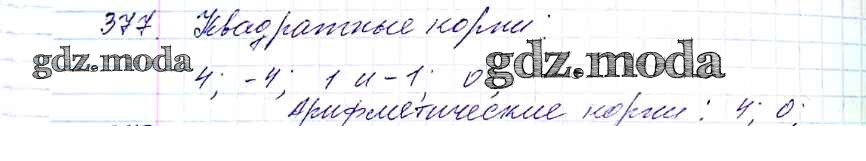 377. Квадратные корни:
gdz.moda gdz.moda
4; -4; 1 и -1; 0;
Арифметические корни: 4; 0;